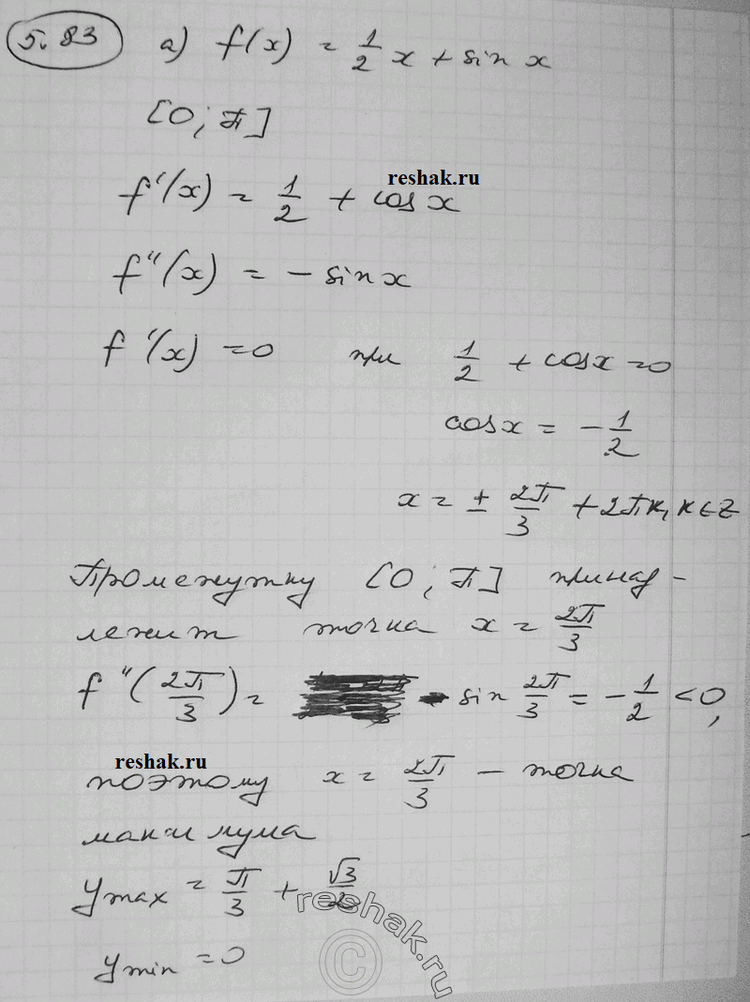 5.83 а) f(x) = 1/2 x + sin x
[0; π]
reshak.ru
f'(x) = 1/2 + cos x
f''(x) = - sin x
f'(x) = 0 при 1/2 + cos x = 0
cos x = - 1/2
x = ± 2π/3 + 2πк, к ∈ Z
Промежутку [0; π] принад-
лежит точка x = 2π/3
f''(2π/3) = - sin 2π/3 = - 1/2 < 0,
reshak.ru
поэтому x = 2π/3 – точка
максимума
y max = π/3 + √3/2
reshak.ru
©
y min = 0